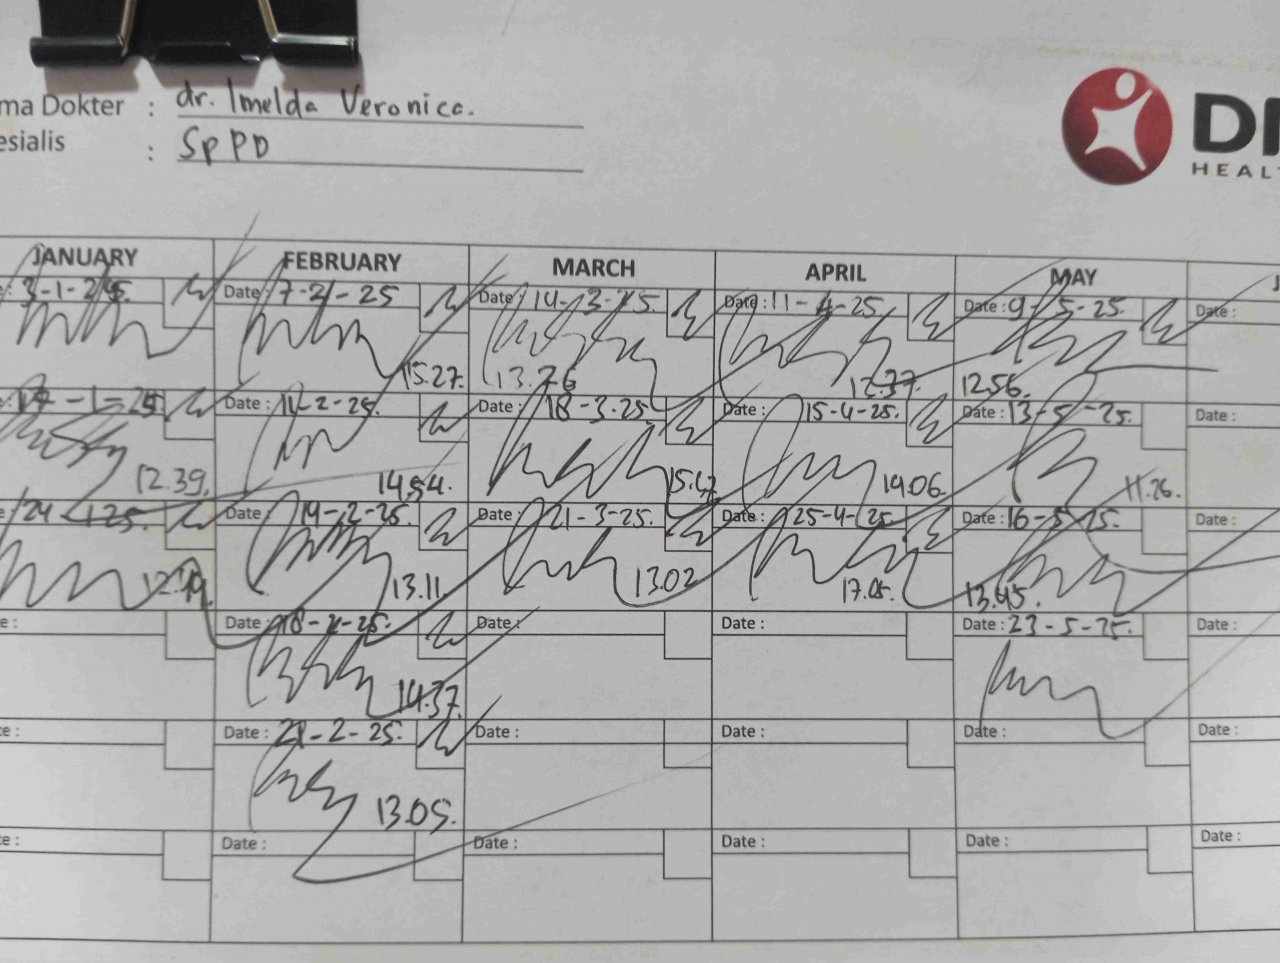 ma Dokter : dr. Imelda Veronica.
esialis : SpPD
HEAL
JANUARY FEBRUARY MARCH APRIL MAY
3-1-25. Date : 7-2-25 Date : 14-3-25. Date : 11-4-25 Date : 9-5-25. Date :
15.27. 13.26 12.37. 12.56.
-1-25 Date : 11-2-25. Date : 18-3-25. Date : 15-4-25. Date : 13-5-25. Date :
12.39. 14.54. 15.47. 14.06. 11.26.
24-1-25. Date : 14-2-25. Date : 21-3-25. Date : 25-4-25. Date : 16-5-25. Date :
13.11. 13.02 17.05. 13.45.
e : Date : 18-2-25. Date : Date : Date : 23-5-25. Date :
14.37.
e : Date : 21-2-25. Date : Date : Date : Date :
13.05.
e : Date : Date : Date : Date : Date :